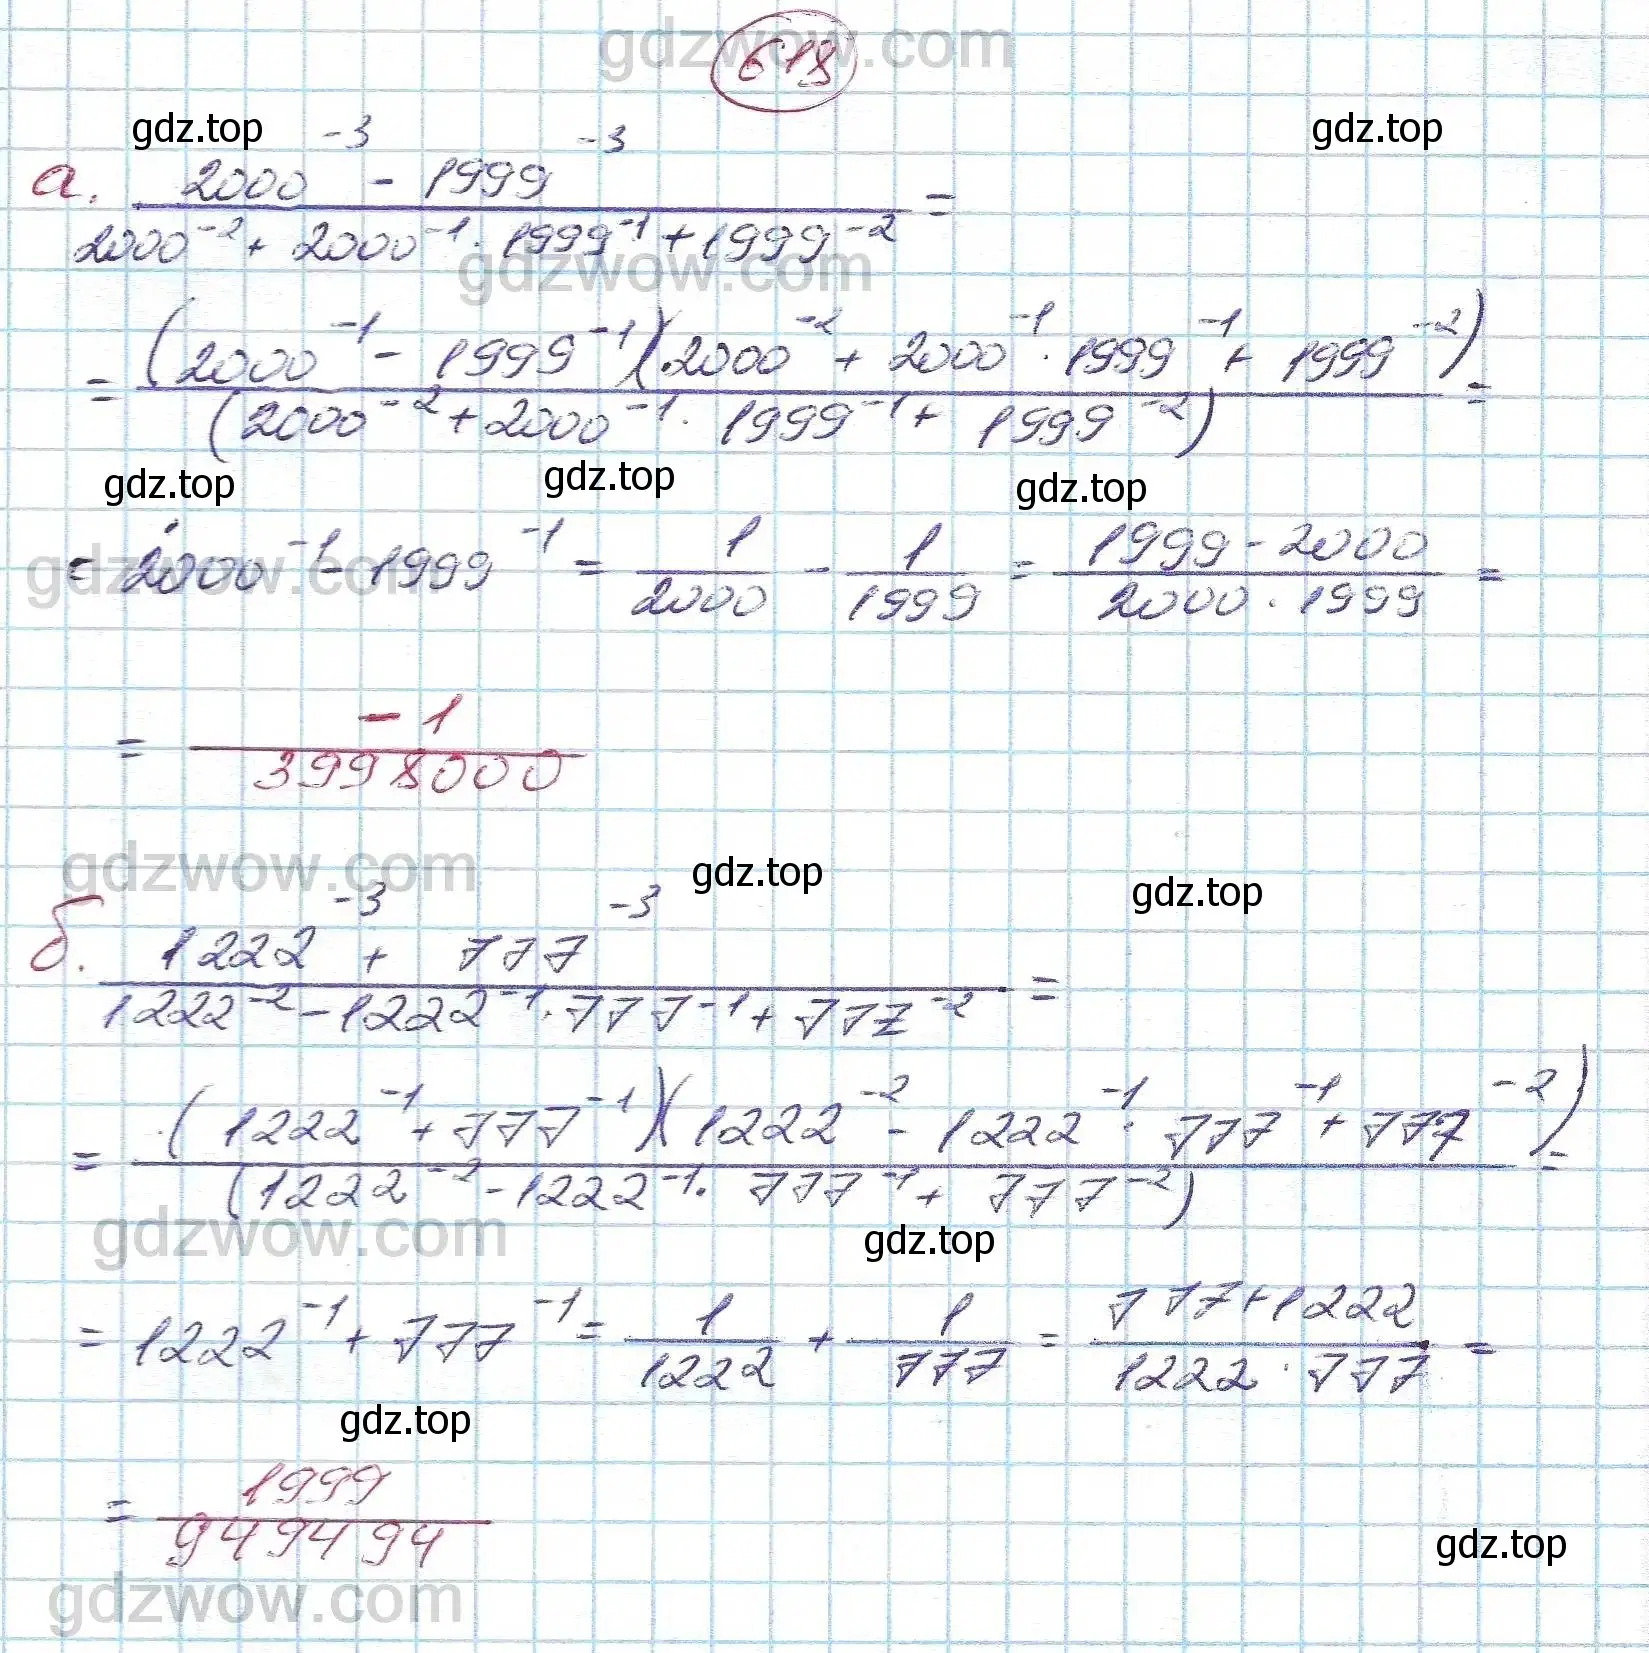 gdzwow.com
618
gdz.top gdz.top
а. (2000^-3 - 1999^-3) / (2000^-2 + 2000^-1 · 1999^-1 + 1999^-2) =
gdzwow.com
= (2000^-1 - 1999^-1)(2000^-2 + 2000^-1 · 1999^-1 + 1999^-2) / (2000^-2 + 2000^-1 · 1999^-1 + 1999^-2) =
gdz.top gdz.top gdz.top
gdzwow.com
= 2000^-1 - 1999^-1 = 1/2000 - 1/1999 = (1999 - 2000)/(2000 · 1999) =
= -1/3998000
gdzwow.com gdz.top gdz.top
б. (1222^-3 + 777^-3) / (1222^-2 - 1222^-1 · 777^-1 + 777^-2) =
= (1222^-1 + 777^-1)(1222^-2 - 1222^-1 · 777^-1 + 777^-2) / (1222^-2 - 1222^-1 · 777^-1 + 777^-2) =
gdzwow.com gdz.top
= 1222^-1 + 777^-1 = 1/1222 + 1/777 = (777 + 1222)/(1222 · 777) =
gdz.top
= 1999/949494
gdz.top
gdzwow.com